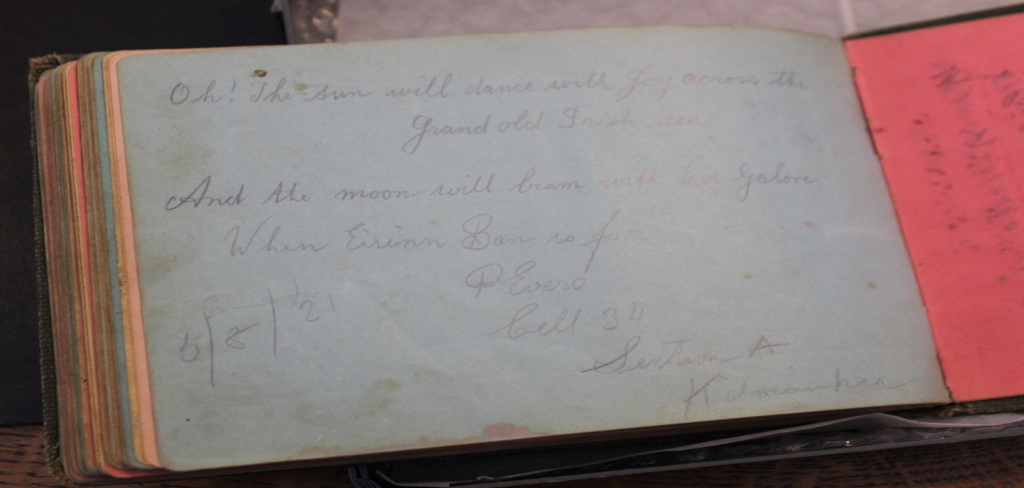 Oh! The sun will dance with Joy across the
Grand old Irish sea
And the moon will beam with love Galore
When Eirinn Ban is free
P Evers
Cell 34
Section A
Kilmainham
5/8/'21